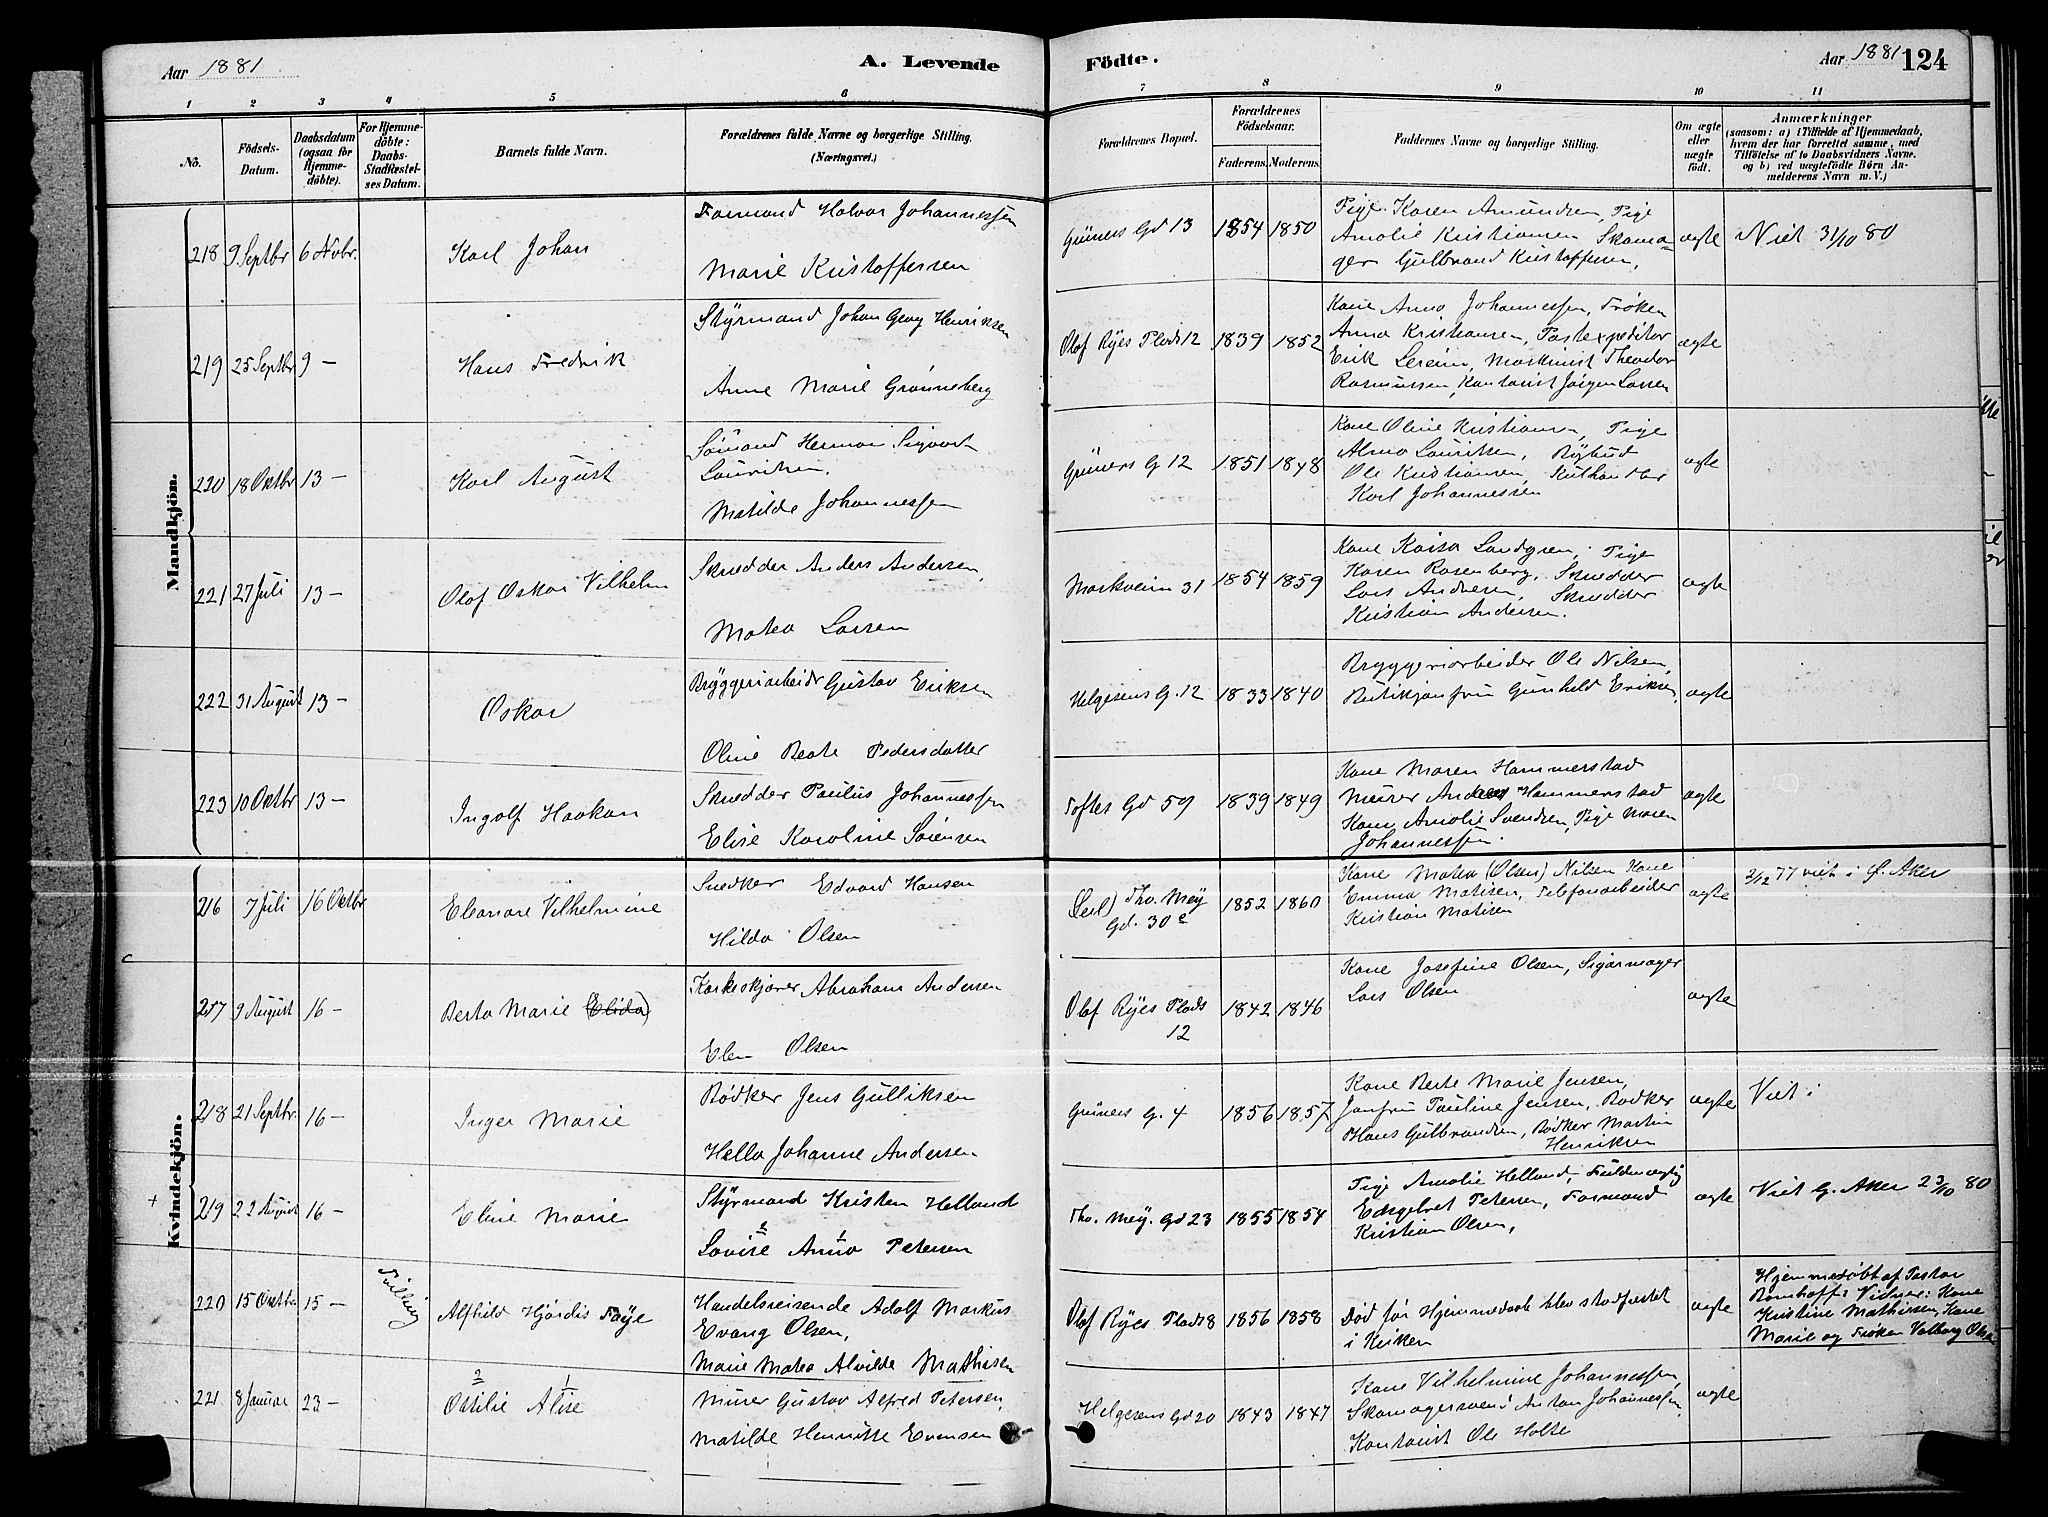 Aar 1881
A. Levende
Födte.
Aar 1881
124
1 2 3 4 5 6 7 8 9 10 11
No.
Födsels-
Datum.
Daabsdatum
(ogsaa for
Hjemme-
döbte).
For Hjemme-
döbte:
Daabs-
Stadfæstel-
ses Datum.
Barnets fulde Navn.
Forældrenes fulde Navne og borgerlige Stilling.
(Næringsvei.)
Forældrenes Bopæl.
Forældrenes
Födselsaar.
Faderens. Moderens.
Faddernes Navne og borgerlige Stilling.
Om ægte
eller
uægte
födt.
Anmærkninger
(saasom: a) i Tilfælde af Hjemmedaab,
hvem der har forrettet samme, med
Tilföielse af to Daabsvidners Navne,
og b) ved uægtefödte Börn An-
melderens Navn m. V.)
Mandkjön.
218 9 Septbr 6 Novbr. Karl Johan
Formand Halvor Johannessen
Marie Kristoffersen
Grüners Gd 13 1854 1850
Pige Karen Amundsen, Pige
Amalie Kristiansen Skoma-
ger Gulbrand Kristoffersen,
ægte
Viet 31/10 80
219 25 Septbr 9 — Hans Fredrik
Styrmand Johan Georg Henriksen
Anne Marie Grønneberg
Olaf Ryes Plads 12 1839 1852
Kone Anna Johannessen, Frøken
Anna Kristiansen, Postexpeditør
Erik Lereim, Maskinist Theodor
Rasmussen, Kontorist Jørgen Larsen
ægte
220 18 Oktbr 13 — Karl August
Sømand Herman Sigvart
Lauritsen.
Matilde Johannessen
Grüners G 12 1851 1848
Kone Oline Kristiansen, Pige
Alma Lauritsen, Bybud
Ole Kristiansen, Kulhandler
Karl Johannessen
ægte
221 27 Juli 13 — Olaf Oskar Vilhelm
Skrædder Anders Andersen,
Matea Larsen
Markveien 31 1854 1859
Kone Kaisa Landgren, Pige
Karen Rosenberg, Skrædder
Lars Andresen, Skrædder
Kristian Andersen.
ægte
222 31 August 13 — Oskar
Bryggeriarbeidr Gustav Eriksen
Oline Beate Pedersdatter
Helgesens G. 12 1833 1840
Bryggeriarbeider Ole Nilsen,
Butikjomfru Gunhild Eriksen,
ægte
223 10 Oktbr 13 — Ingolf Haakon
Skrædder Paulus Johannessen
Elise Karoline Sørensen
Toftes Gd 59 1839 1849
Kone Maren Hammerstad
Murer Anders Hammerstad
Kone Amalie Svendsen, Pige Maren
Johannessen.
ægte
Kvindekjön.
216 7 Juli 16 Oktbr Eleonore Vilhelmine
Snedker Edvard Hansen
Hilda Olsen
Tho. Mey
Gd. 30 c 1852 1860
Kone Matea (Olsen) Nilsen Kone
Emma Matisen, Telefonarbeider
Kristian Matisen
ægte
2/12 77 viet i G. Aker
217 9 August 16 — Berta Marie (Elida)
Korkskjærer Abraham Andersen
Elen Olsen
Olaf Ryes Plads
12
1842 1846
Kone Josefine Olsen, Sigarmager
Lars Olsen
ægte
218 21 Septbr. 16 — Inger Marie
Bødker Jens Gulliksen
Hella Johanne Andersen
Grüners G. 4 1856 1857
Kone Berte Marie Jensen,
Jomfru Pauline Jensen, Bødker
Hans Gulbrandsen, Bødker Martin
Henriksen
ægte
Viet i
+
219 22 August 16 — Eline Marie
Styrmand Kristen Helland
2 1
Lovise Anna Petersen
Tho. Mey. Gd 23 1855 1854
Pige Amalie Helland, Fuldmægtig
Petersen, Formand
Kristian Olsen,
ægte
Viet G. Aker 23/10 80
Tvilling
220 15 Oktbr. 15 — Alfhild Hjørdis Føye
Handelsreisende Adolf Markus
Evang Olsen,
Marie Matea Alvilde Mathisen
Olaf Ryes Plads 8 1856 1858
Død før Hjemmedaab blev stadfæstet
i Kirken
ægte
Hjemmedøbt af Pastor
Bomhoff: Vidner: Kone
Kristine Mathisen, Kone
Marie og Frøken Valborg Olsen
2 1
221 8 Januar 23 — Ottilie Alise
Murer Gustav Alfred Petersen,
Matilde Henriette Evensen
Helgesens Gd 20 1843 1847
Kone Vilhelmine Johannessen,
Skomagersvend Anton Johannessen,
Kontorist Ole Holte
ægte